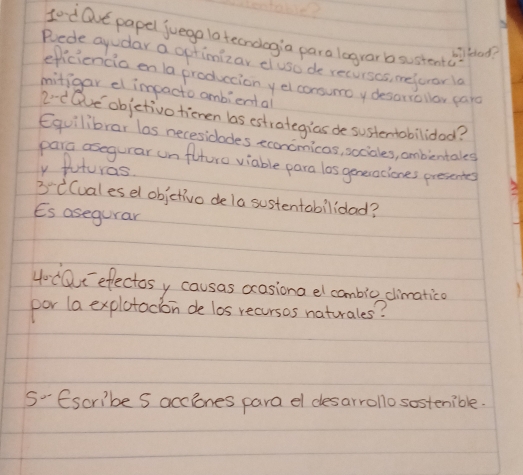 1o-¿Qué papel juega la tecnología para lograr la sustentabilidad?
Puede ayudar a optimizar el uso de recursos, mejorar la
eficiencia en la producción y el consumo y desarrollar para
mitigar el impacto ambiental
2-¿Qué objetivo tienen las estrategias de sustentabilidad?
Equilibrar las necesidades económicas, sociales, ambientales
para asegurar un futuro viable para las generaciones presentes
y futuras.
3-¿Cual es el objetivo de la sustentabilidad?
Es asegurar
4o-¿Qué efectos y causas ocasiona el cambio climatico
por la explotoción de los recursos naturales?
5-- Escribe 5 acciones para el desarrollo sostenible.